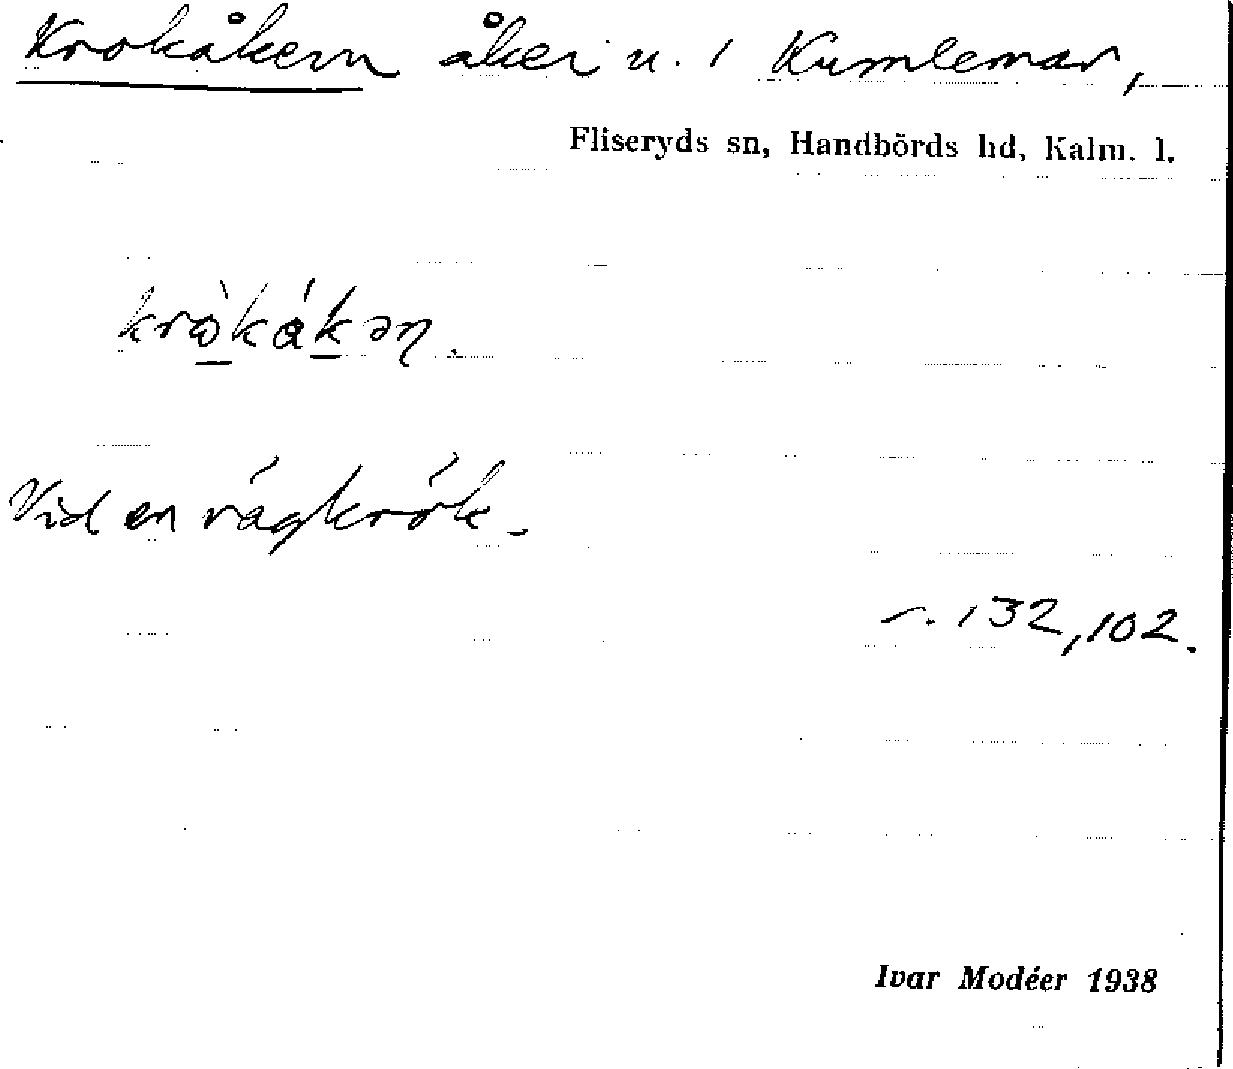 Krokåkern åker u. 1 Kumlemar,
Fliseryds sn, Handbörds hd, Kalm. l.
krò̲kák̲əɳ.
Vid en vägkrök.
r. 132, 102.
Ivar Modéer 1938